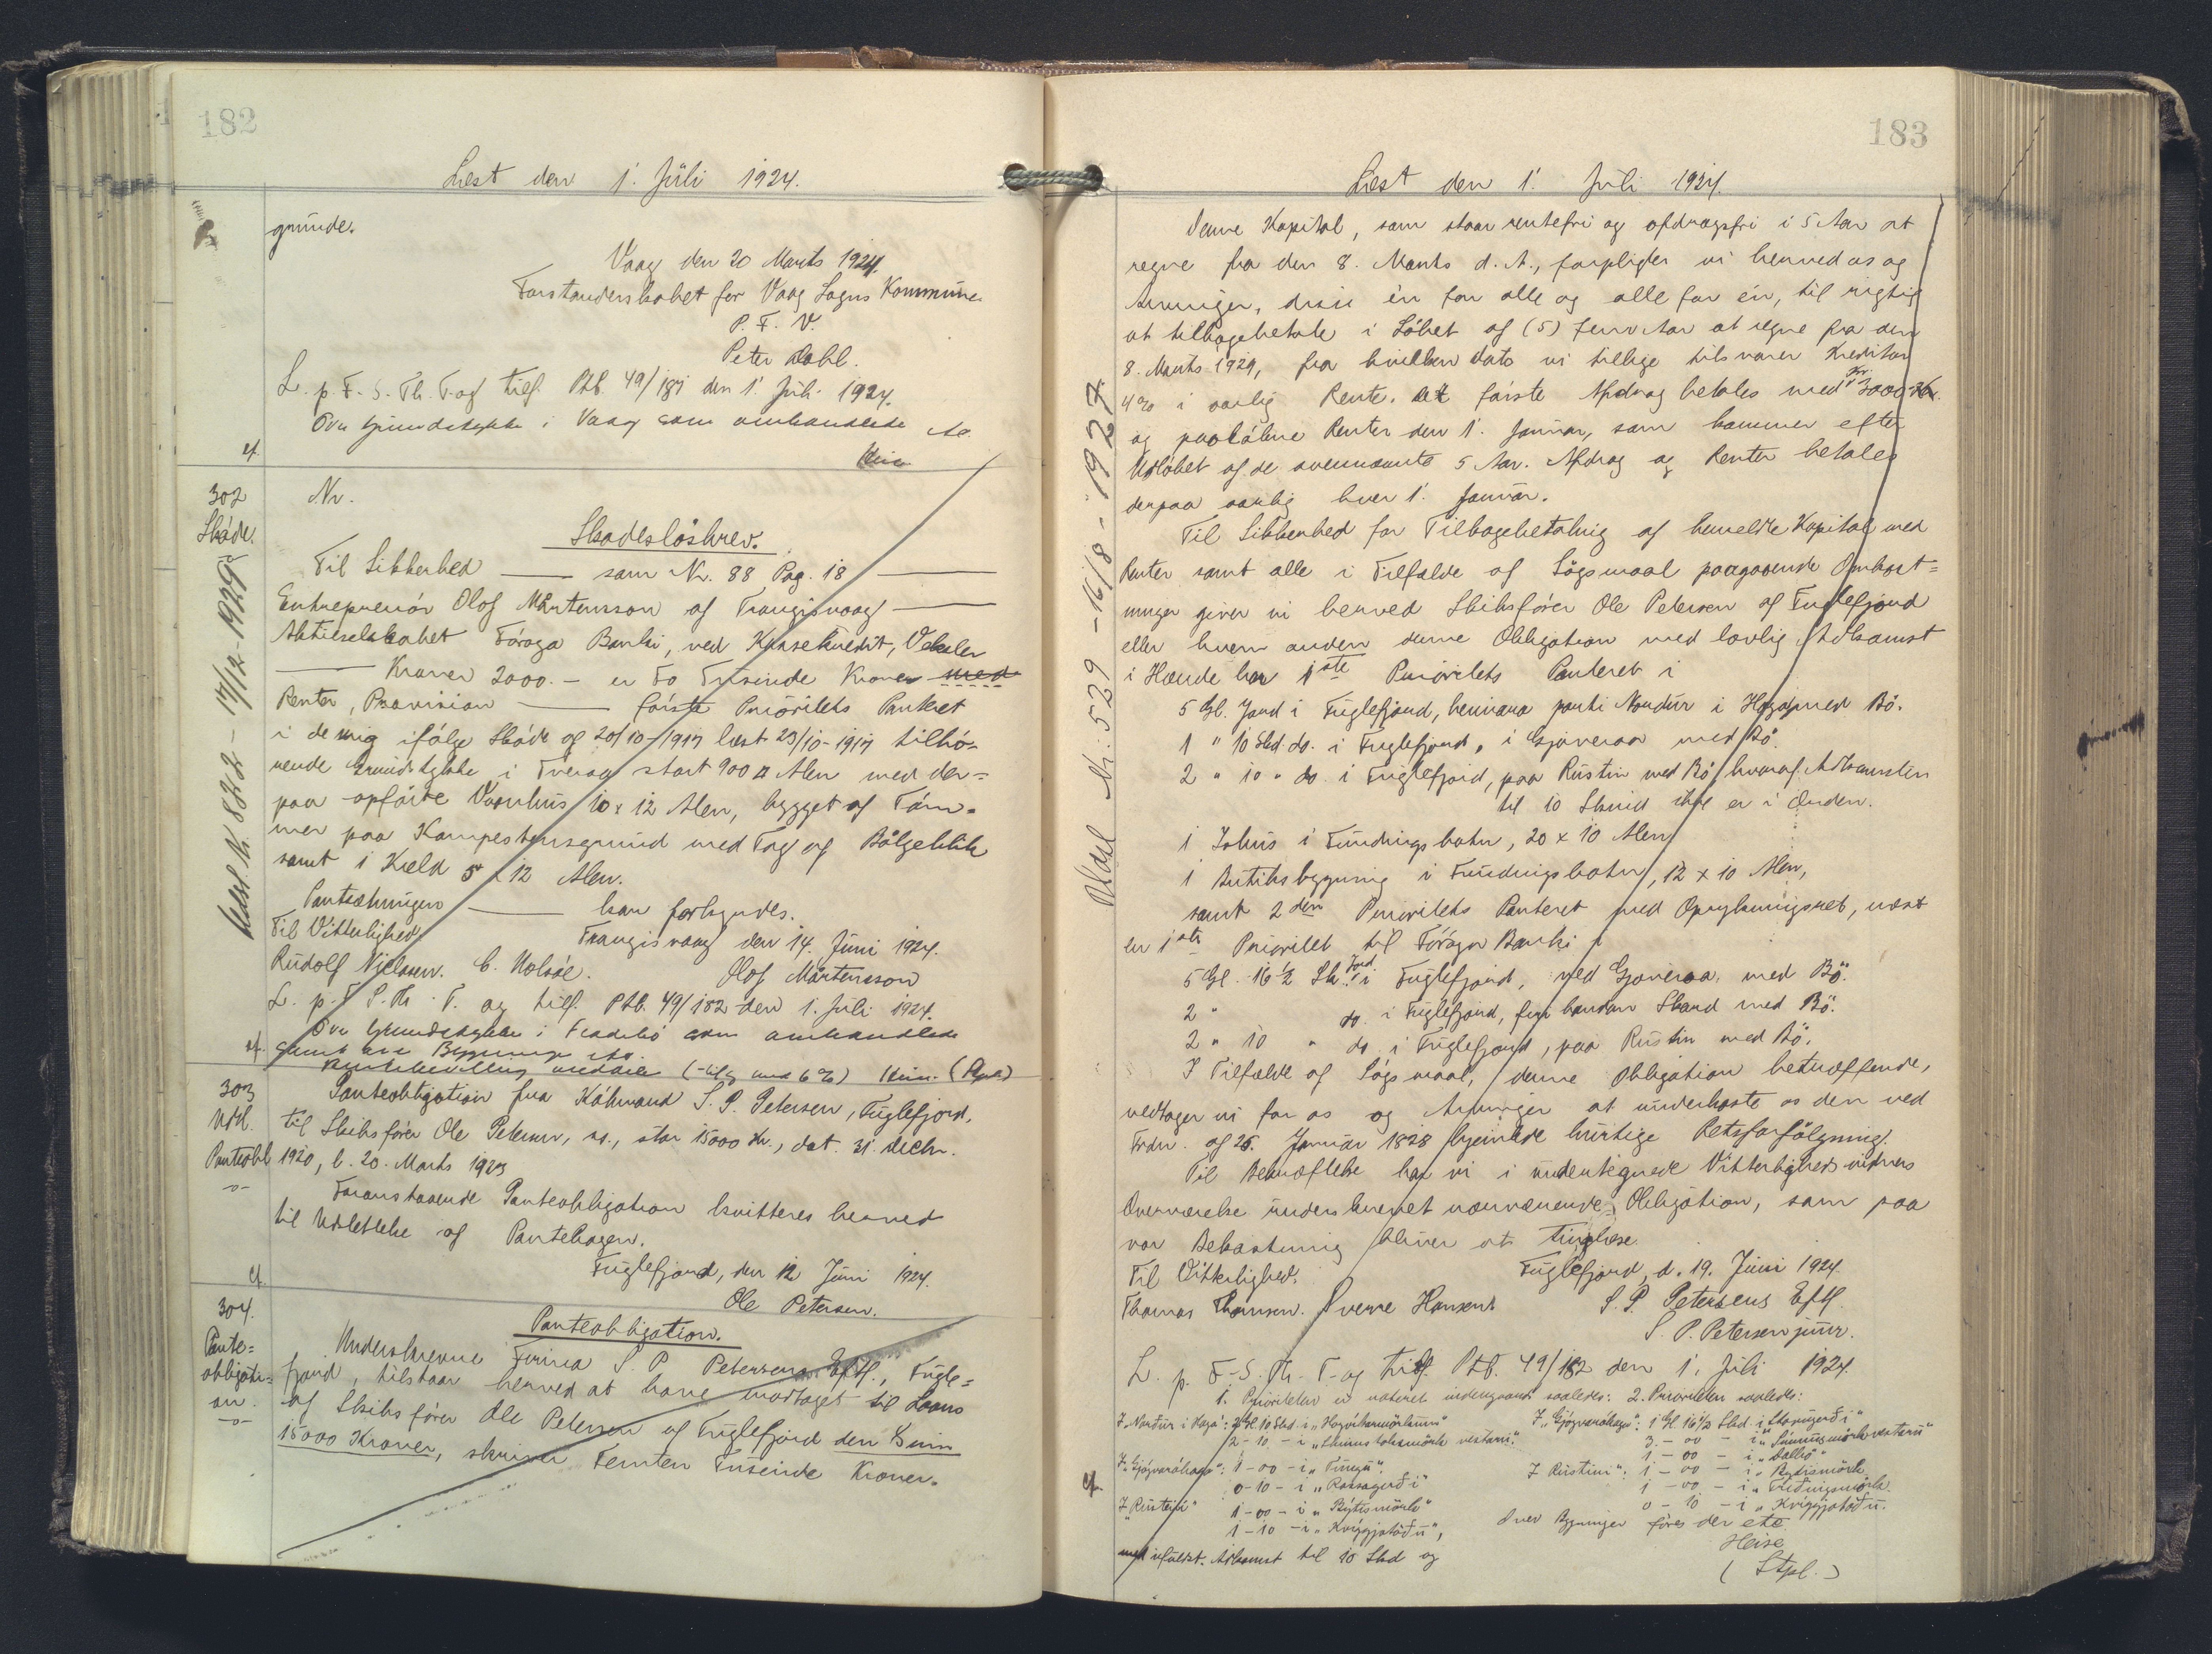 182
Læst den 1. Juli 1924.
grunde.
Vaag den 20 Marts 1924.
Forstanderskabet for Vaag Sogns Kommune
P. F. V.
Peter Dahl.
L. p. F. S. Th. T. og tilf. Ptb. 49/181 den 1. Juli 1924.
Ova Grundstykke i Vaag som omhandlede
302
Nr.
Skadesløsbrev.
Til Sikkerhed — som Nr. 88 Pag. 18 —
Entreprenör Olof Mårtensson af Trangisvaag —
Aktieselskabet Føroya Banki, ved Kassekredit, Veksler
— Kroner 2000.- er To Tusinde Kroner med
Renter, Provision — første Prioritets Panteret
i de mig ifølge Skøde af 20/10-1917 læst 23/10-1917 tilhø-
rende Grundstykke i Tveraa stort 900 □ Alen med der=
paa opførte Vaanhus 10 x 12 Alen, bygget af Tøm=
mer paa Kampestensgrund med Tag af Bølgeblik
samt 1 Kæld 5 x 12 Alen.
Pantsætningen — kan forlignes.
Til Vitterlighed. Trangisvaag den 14. Juni 1924.
Rudolf Nielsen. C. Holsöe. Olof Mårtensson
L. p. F. S. Th. T. og tilf. Ptb. 49/182 den 1. Juli 1924.
Ova Grundstykke i som omhandlede
(-til og med 6%)
Udsl. Nr. 822 - 17/12-1929
303
Udsl.
Panteobl
Panteobligation fra Købmand S. P. Petersen, Fuglefjord,
til Skibsfører Ole Petersen, ss., stor 15000 Kr., dat. 31. Decbr.
1920, l. 20. Marts 1923
Foranstaaende Panteobligation kvitteres herved
til Udslettelse af Pantebogen.
Fuglefjord, den 12 Juni 1924.
Ole Petersen.
304.
Pante=
obligati=
on.
Panteobligation.
Underskrevne Firma S. P. Petersens Eftf., Fugle=
fjord, tilstaar herved at have modtaget til Laans
af Skibsfører Ole Petersen af Fuglefjord den Sum
15000 Kroner, skriver Femten Tusinde Kroner.
183
Læst den 1. Juli 1924.
Denne Kapital, som staar rentefri og afdragsfri i 5 Aar at
regne fra den 8. Marts d. A., forpligter vi herved os og
Arvinger, disse én for alle og alle for én, til rigtig
at tilbagebetale i Løbet af (5) fem Aar at regne fra den
8. Marts 1929, fra hvilken Dato vi tillige tilsvarer Kreditor
4% i aarlig Rente. Det første Afdrag betales med Kr. 3000
og paaløbne Renter den 1. Januar, som kommer efter
Udløbet af de ovennævnte 5 Aar. Afdrag og Renter betales
derpaa aarlig hver 1. Januar.
Til Sikkerhed for Tilbagebetaling af bemeldte Kapital med
Renter samt alle i Tilfælde af Søgsmaal paagaaende Omkost=
ninger giver vi herved Skibsfører Ole Petersen af Fuglefjord
eller hvem anden denne Obligation med lovlig Adkomst
i Hænde har 1ste Prioritets Panteret i
5 Gl. Jord i Fuglefjord, hennara parti Nordur i Haga med Bö.
1 " 10 Skd. do. i Fuglefjord, i Gjóveraa med Bö.
2 " 10 " do i Fuglefjord, paa Rustin med Bö hvoraf Adkomsten
til 10 Skind ikke er i Orden.
1 Ishus i Fundingsbotn, 20 x 10 Alen
1 Butiksbygning i Fundingsbotn, 12 x 10 Alen,
samt 2den Prioritets Panteret med Oprykningsret, næst
en 1ste Prioritet til Føroya Banki i
5 Gl. 16½ Sk. Jord i Fuglefjord, ved Gjoveraa, med Bö.
2 " do. i Fuglefjord, fyri handan Skard med Bö.
2 " 10 " do i Fuglefjord, paa Rustin med Bö.
I Tilfælde af Søgsmaal, denne Obligation betræffende,
vedtager vi for os og Arvinger at underkaste os den ved
Frdn. af 25. Januar 1828 hjemlede hurtige Retsforfølgning.
Til Bekræftelse har vi i undertegnede Vitterlighedsvidners
Overværelse underskrevet nærværende Obligation, som paa
vor Bekostning bliver at tinglæse.
Til Vitterlighed. Fuglefjord, d. 19. Juni 1924.
Thomas Thomsen. Sverre Hansen. S. P. Petersens Eftf.
S. P. Petersen junr.
L. p. F. S. Th. T. og tilf. Ptb. 49/182 den 1. Juli 1924.
1. Prioriteten er noteret indengaard saaledes: 2. Prioriteten saaledes:
I "Gjógvaráhaga": 1-00-i "Tungu".
I "Rustini" 1-00-i "Býtismörk"
1-10-i "Kviggjatøðu",
Adkomst til 10 Skd og
I "Rustini": 1-00-i "Bydismörk
0-10-i "Kviggjatöðu".
over Bygninger föres der etc.
Heise
(Stpl.)
Udsl Nr: 529 - 16/8 - 1927.